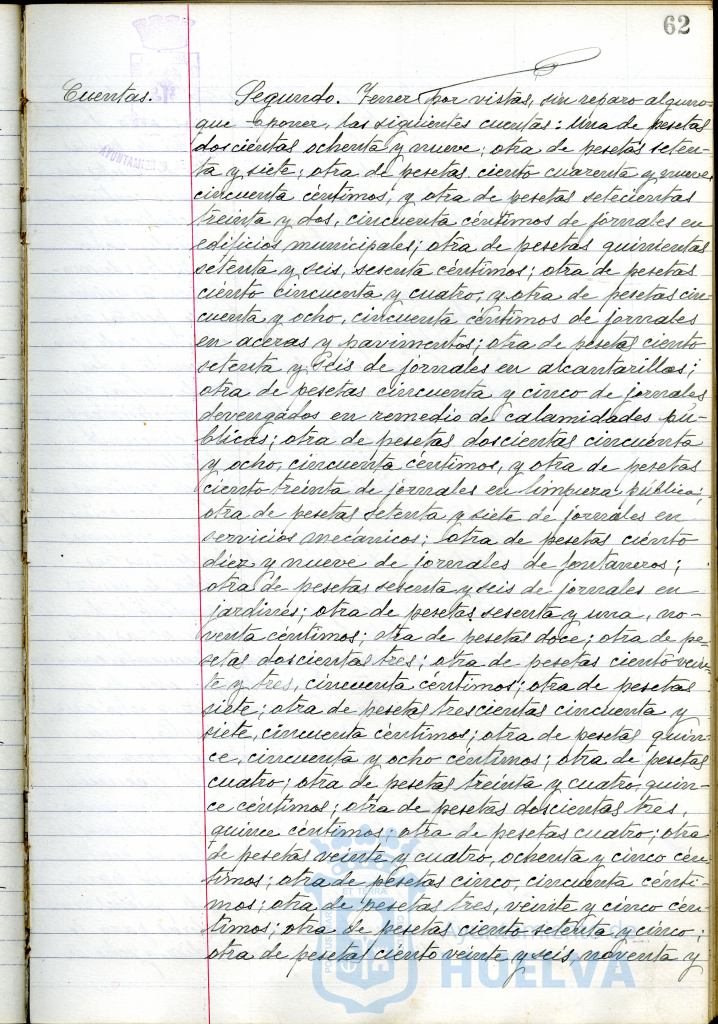 62
Cuentas.
Segundo. Tener por vistas, sin reparo alguno
que oponer, las siguientes cuentas: una de pesetas
doscientas ochenta y nueve; otra de pesetas seten-
ta y siete; otra de pesetas ciento cuarenta y nueve,
cincuenta céntimos, y otra de pesetas setecientas
treinta y dos, cincuenta céntimos de jornales en
edificios municipales; otra de pesetas quinientas
setenta y seis, sesenta céntimos; otra de pesetas
ciento cincuenta y cuatro, y otra de pesetas cin-
cuenta y ocho, cincuenta céntimos de jornales
en aceras y pavimentos; otra de pesetas ciento
setenta y seis de jornales en alcantarillas;
otra de pesetas cincuenta y cinco de jornales
devengados en remedio de calamidades pú-
blicas; otra de pesetas doscientas cincuenta
y ocho, cincuenta céntimos, y otra de pesetas
ciento treinta de jornales en limpieza pública;
otra de pesetas setenta y siete de jornales en
servicios mecánicos; otra de pesetas ciento
diez y nueve de jornales de fontaneros;
otra de pesetas sesenta y seis de jornales en
jardines; otra de pesetas sesenta y una, no-
venta céntimos; otra de pesetas doce; otra de pe-
setas doscientas tres; otra de pesetas ciento vein-
te y tres, cincuenta céntimos; otra de pesetas
siete; otra de pesetas trescientas cincuenta y
siete, cincuenta céntimos; otra de pesetas quin-
ce, cincuenta y ocho céntimos; otra de pesetas
cuatro; otra de pesetas treinta y cuatro, quin-
ce céntimos; otra de pesetas doscientas tres,
quince céntimos; otra de pesetas cuatro; otra
de pesetas veinte y cuatro, ochenta y cinco cén-
timos; otra de pesetas cinco, cincuenta cénti-
mos; otra de pesetas tres, veinte y cinco cén-
timos; otra de pesetas ciento setenta y cinco;
otra de pesetas ciento veinte y seis, noventa y
HUELVA